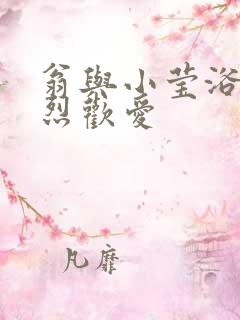 翁與小莹浴
烈歡愛
凡靡